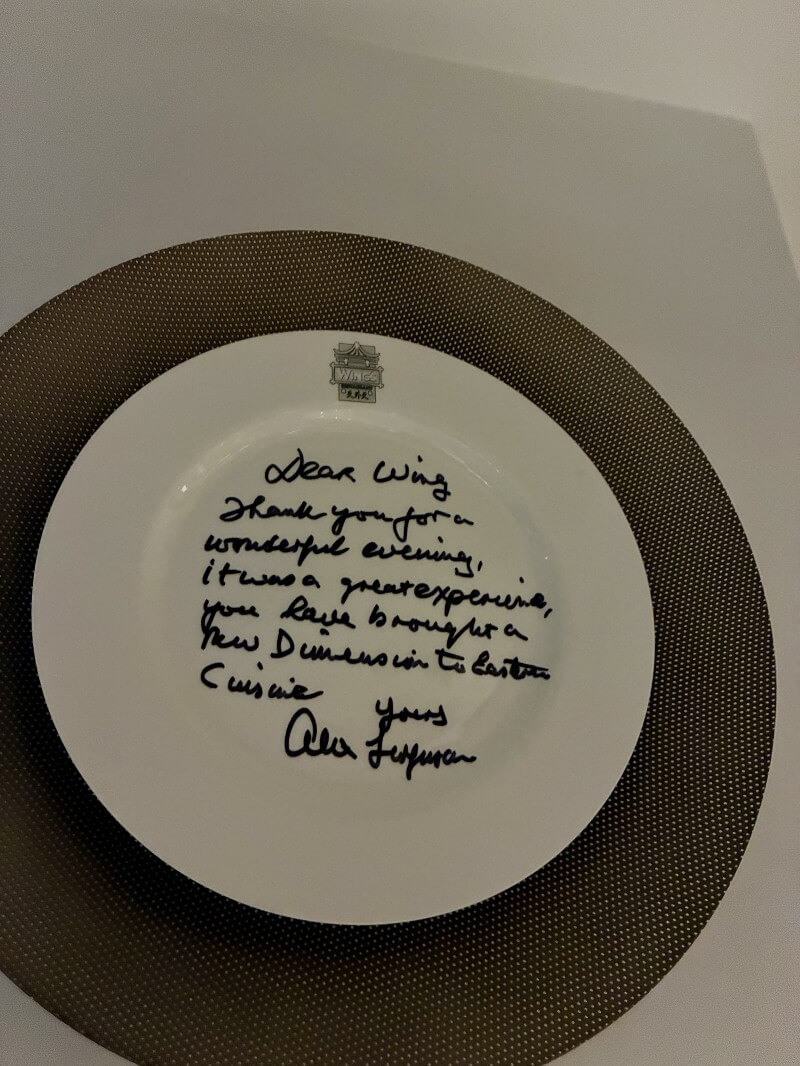 WINGS
RESTAURANT
Dear Wing
Thank you for a
wonderful evening,
it was a great experience,
you have brought a
New Dimension to Eastern
Cuisine
yours
Alex Ferguson